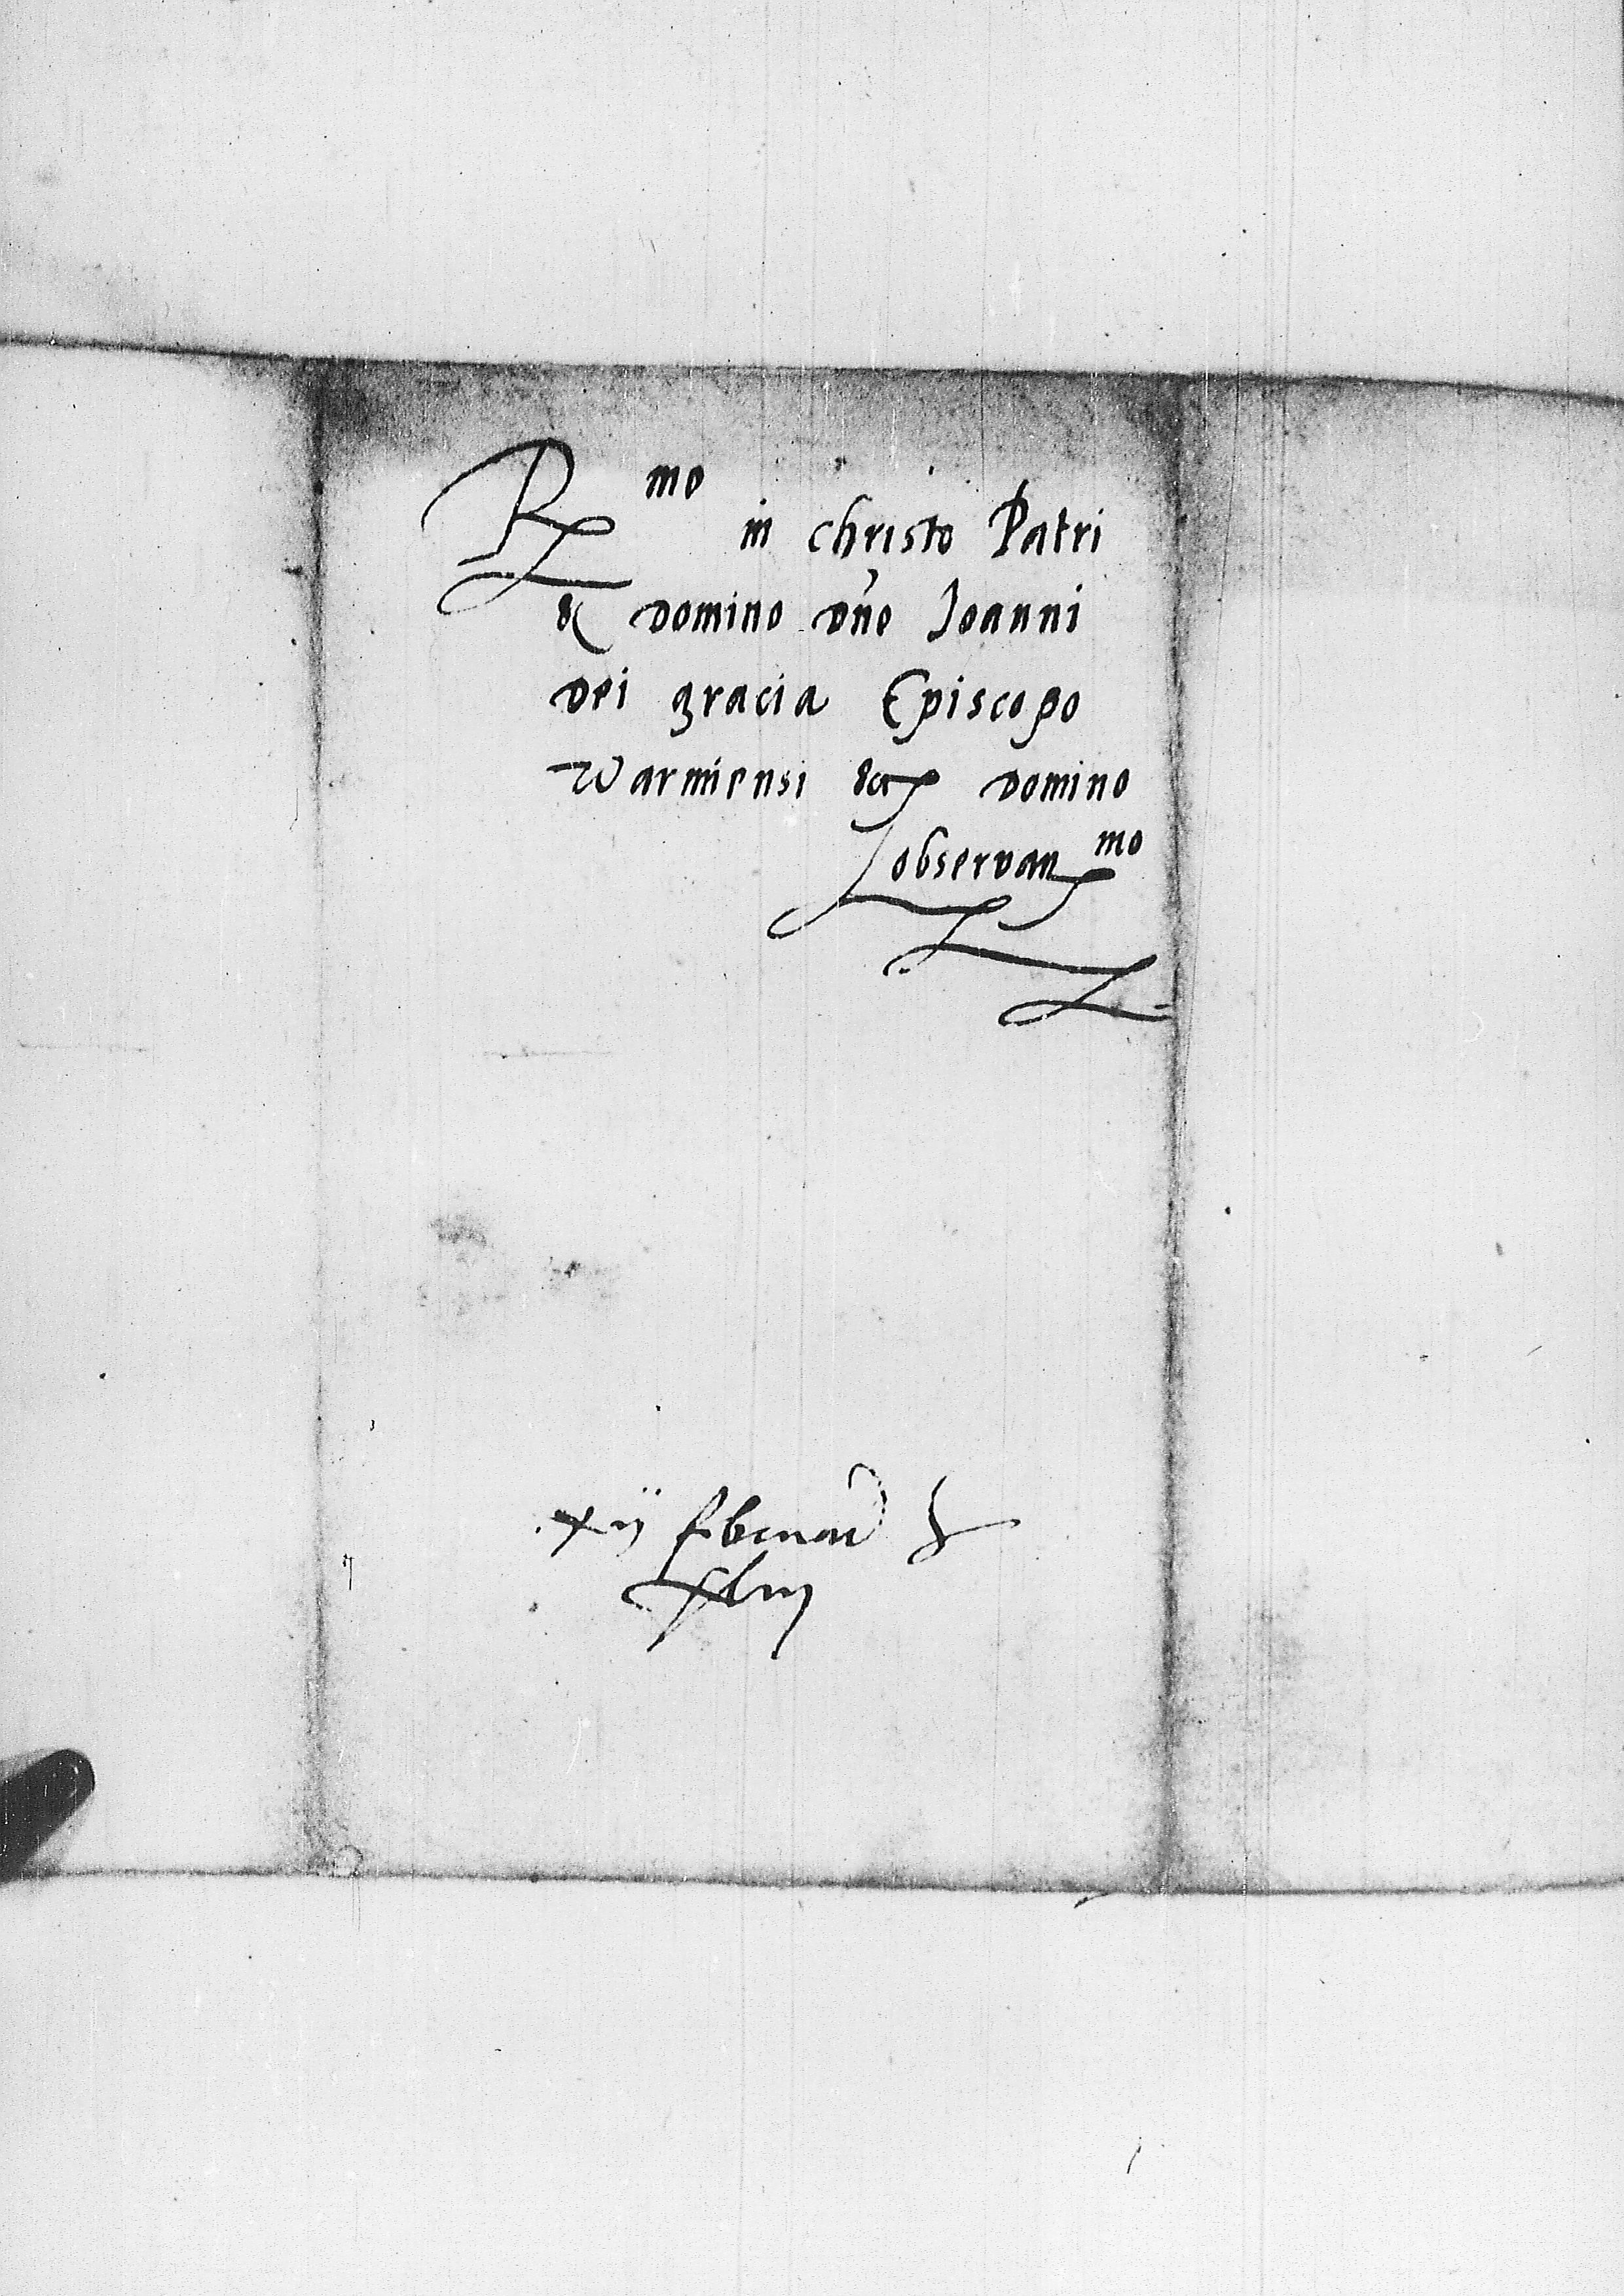 R mo in christo Patri
& domino dn̄o Joanni
dei gracia Episcopo
Warmiensi &c domino
observan mo
xij februarij